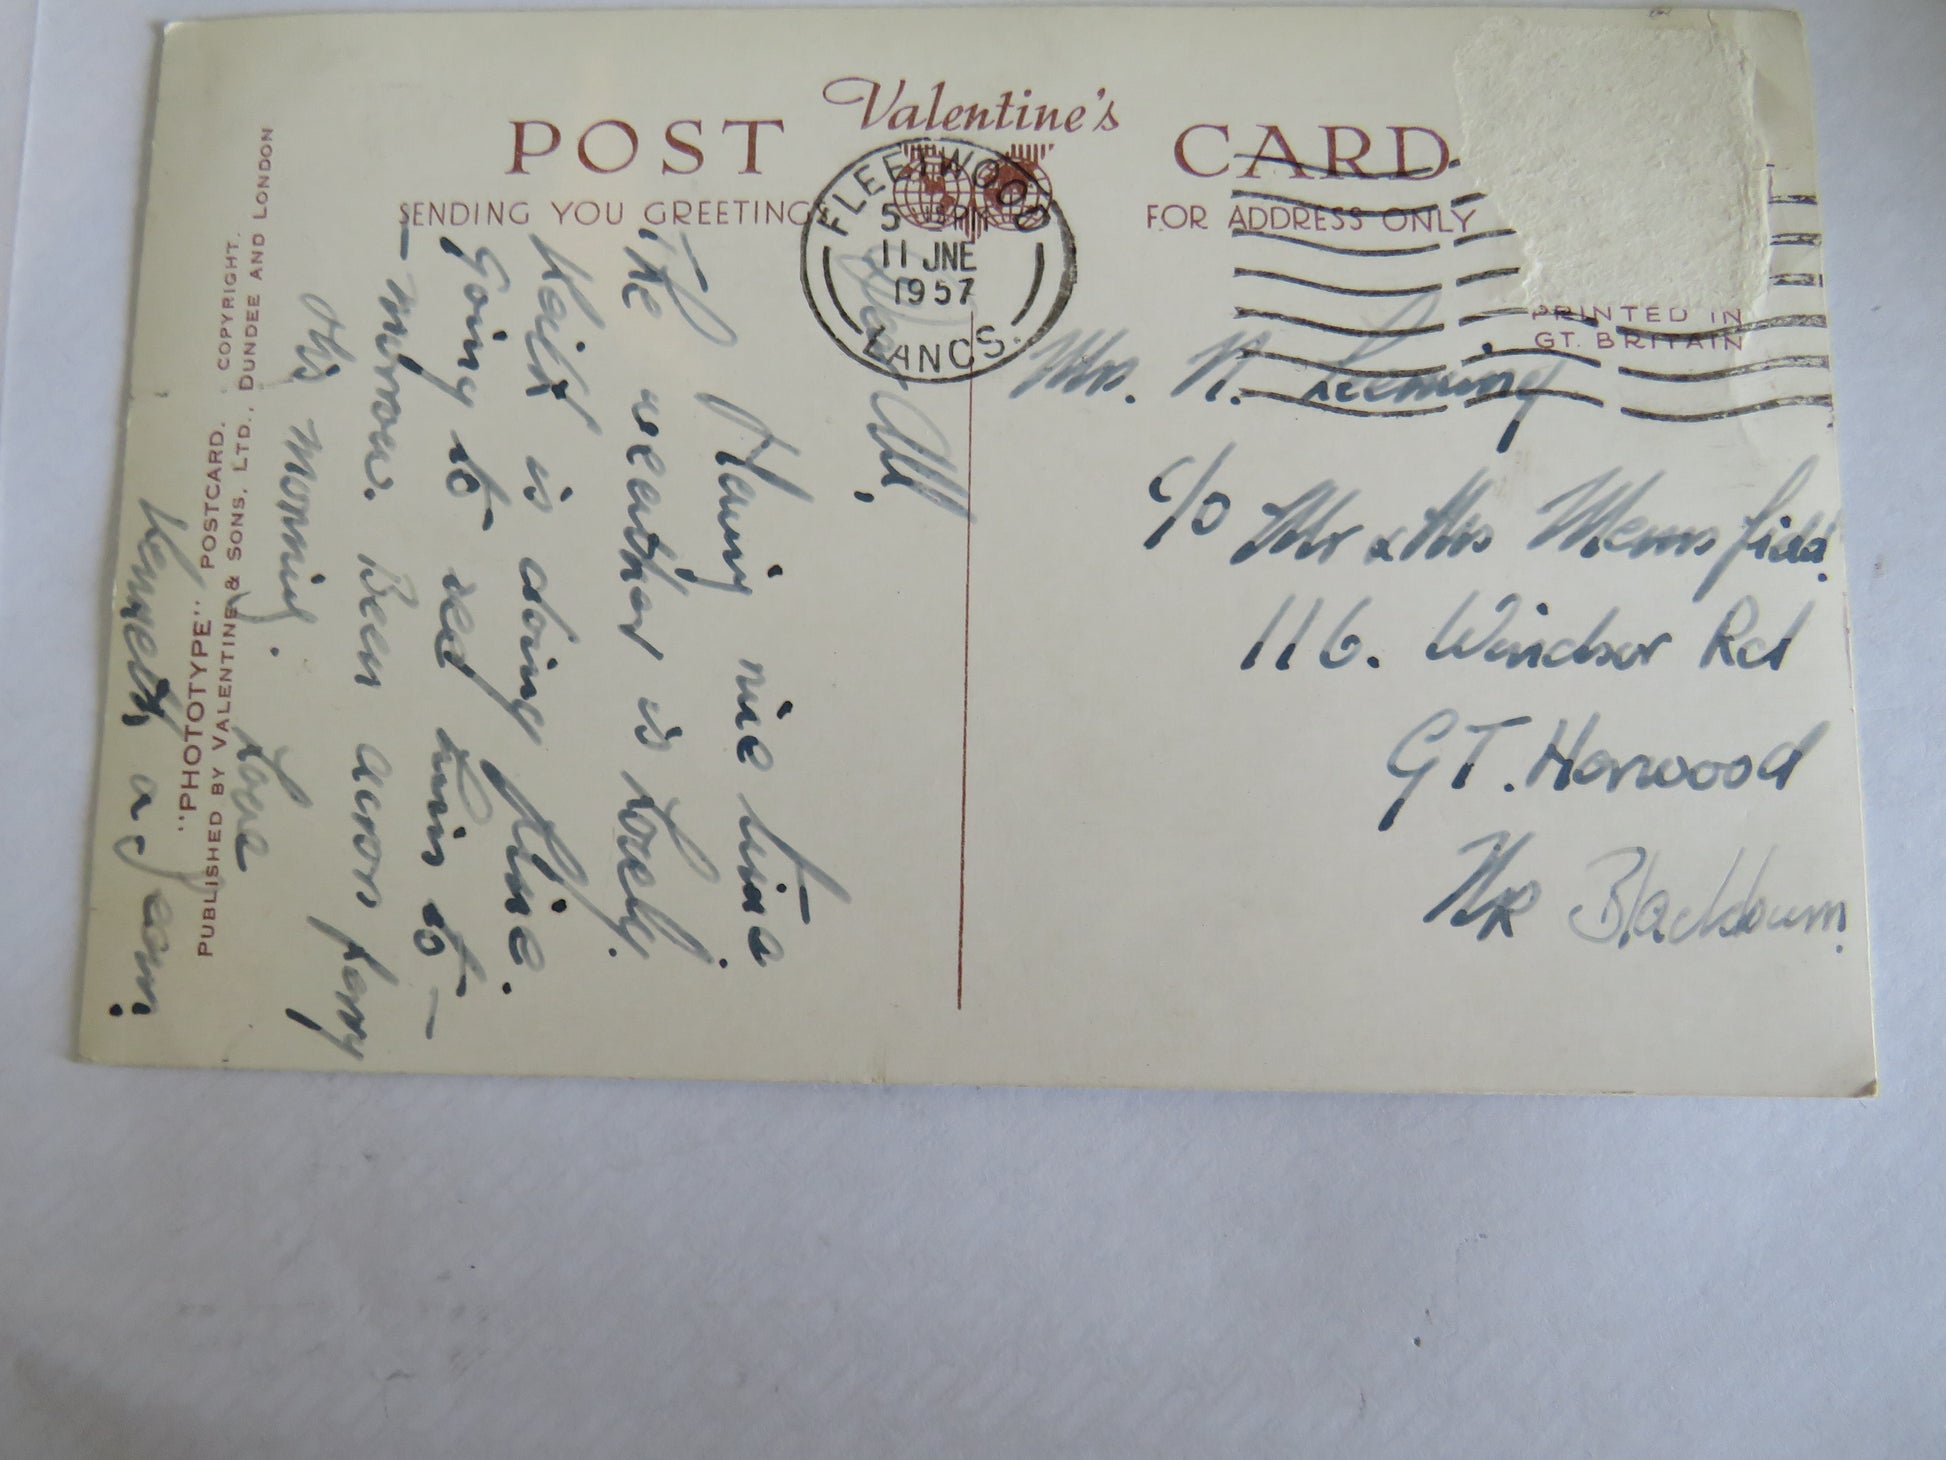 Valentine's
POST CARD
SENDING YOU GREETINGS
FOR ADDRESS ONLY
PRINTED IN
GT. BRITAIN
FLEETWOOD
5 PM
11 JNE
1957
LANCS.
Dear All,
Having nice time.
The weather is lovely.
Keith is doing fine.
Going to see him to-
-morrow. Been across ferry
this morning.
Love
Kenneth
Mrs. N. Leeming
c/o Mr & Mrs
116. Windsor Rd
GT. Harwood
NR Blackburn.
"PHOTOTYPE" POSTCARD. COPYRIGHT.
PUBLISHED BY VALENTINE & SONS, LTD., DUNDEE AND LONDON